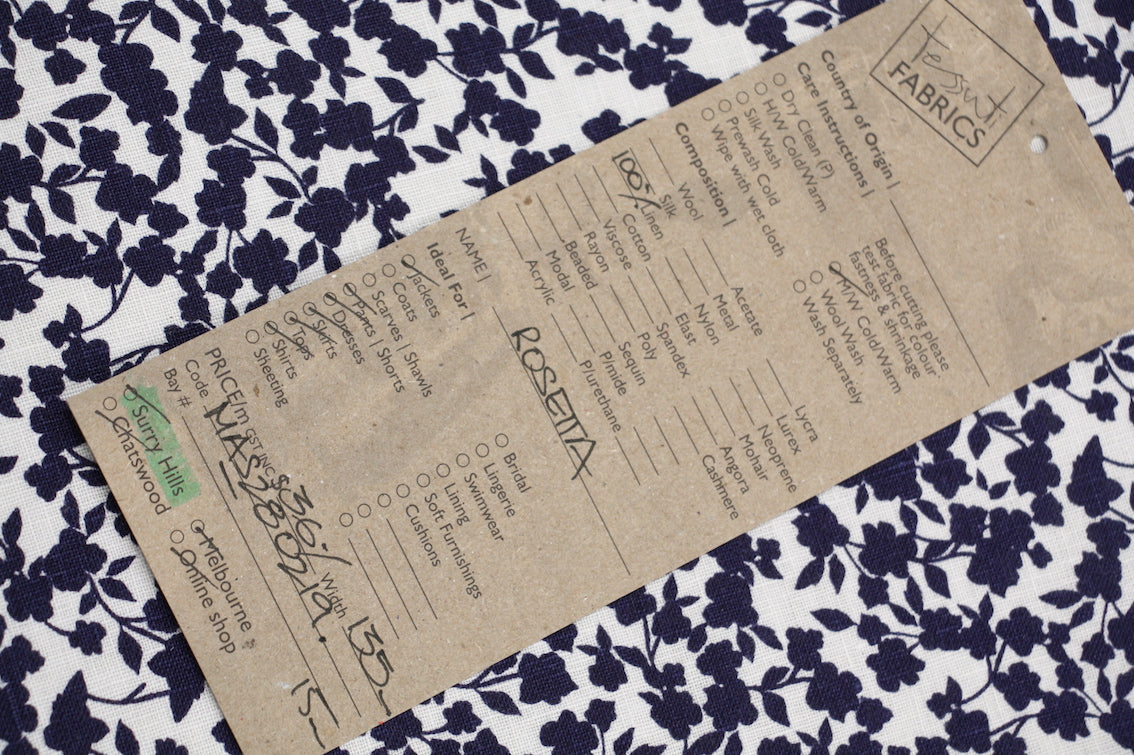 Tessuti
FABRICS
Country of Origin |
Care Instructions |
Dry Clean (P)
H/W Cold/Warm
Silk Wash
Prewash Cold
Wipe with wet cloth
Before cutting please
test fabric for colour
fastness & shrinkage
M/W Cold/Warm
Wool Wash
Wash Separately
Composition |
Wool
Silk
100% Linen
Cotton
Viscose
Rayon
Beaded
Modal
Acrylic
Acetate
Metal
Nylon
Elast
Spandex
Poly
Sequin
P/mide
P/urethane
Lycra
Lurex
Neoprene
Mohair
Angora
Cashmere
NAME | ROSETTA
Ideal For |
Jackets
Coats
Scarves | Shawls
Pants | Shorts
Dresses
Skirts
Tops
Shirts
Sheeting
Bridal
Lingerie
Swimwear
Lining
Soft Furnishings
Cushions
PRICE/m GST INC $ 36./ Width 135
Code
Bay #
15
Surry Hills
Chatswood
Melbourne
Online shop